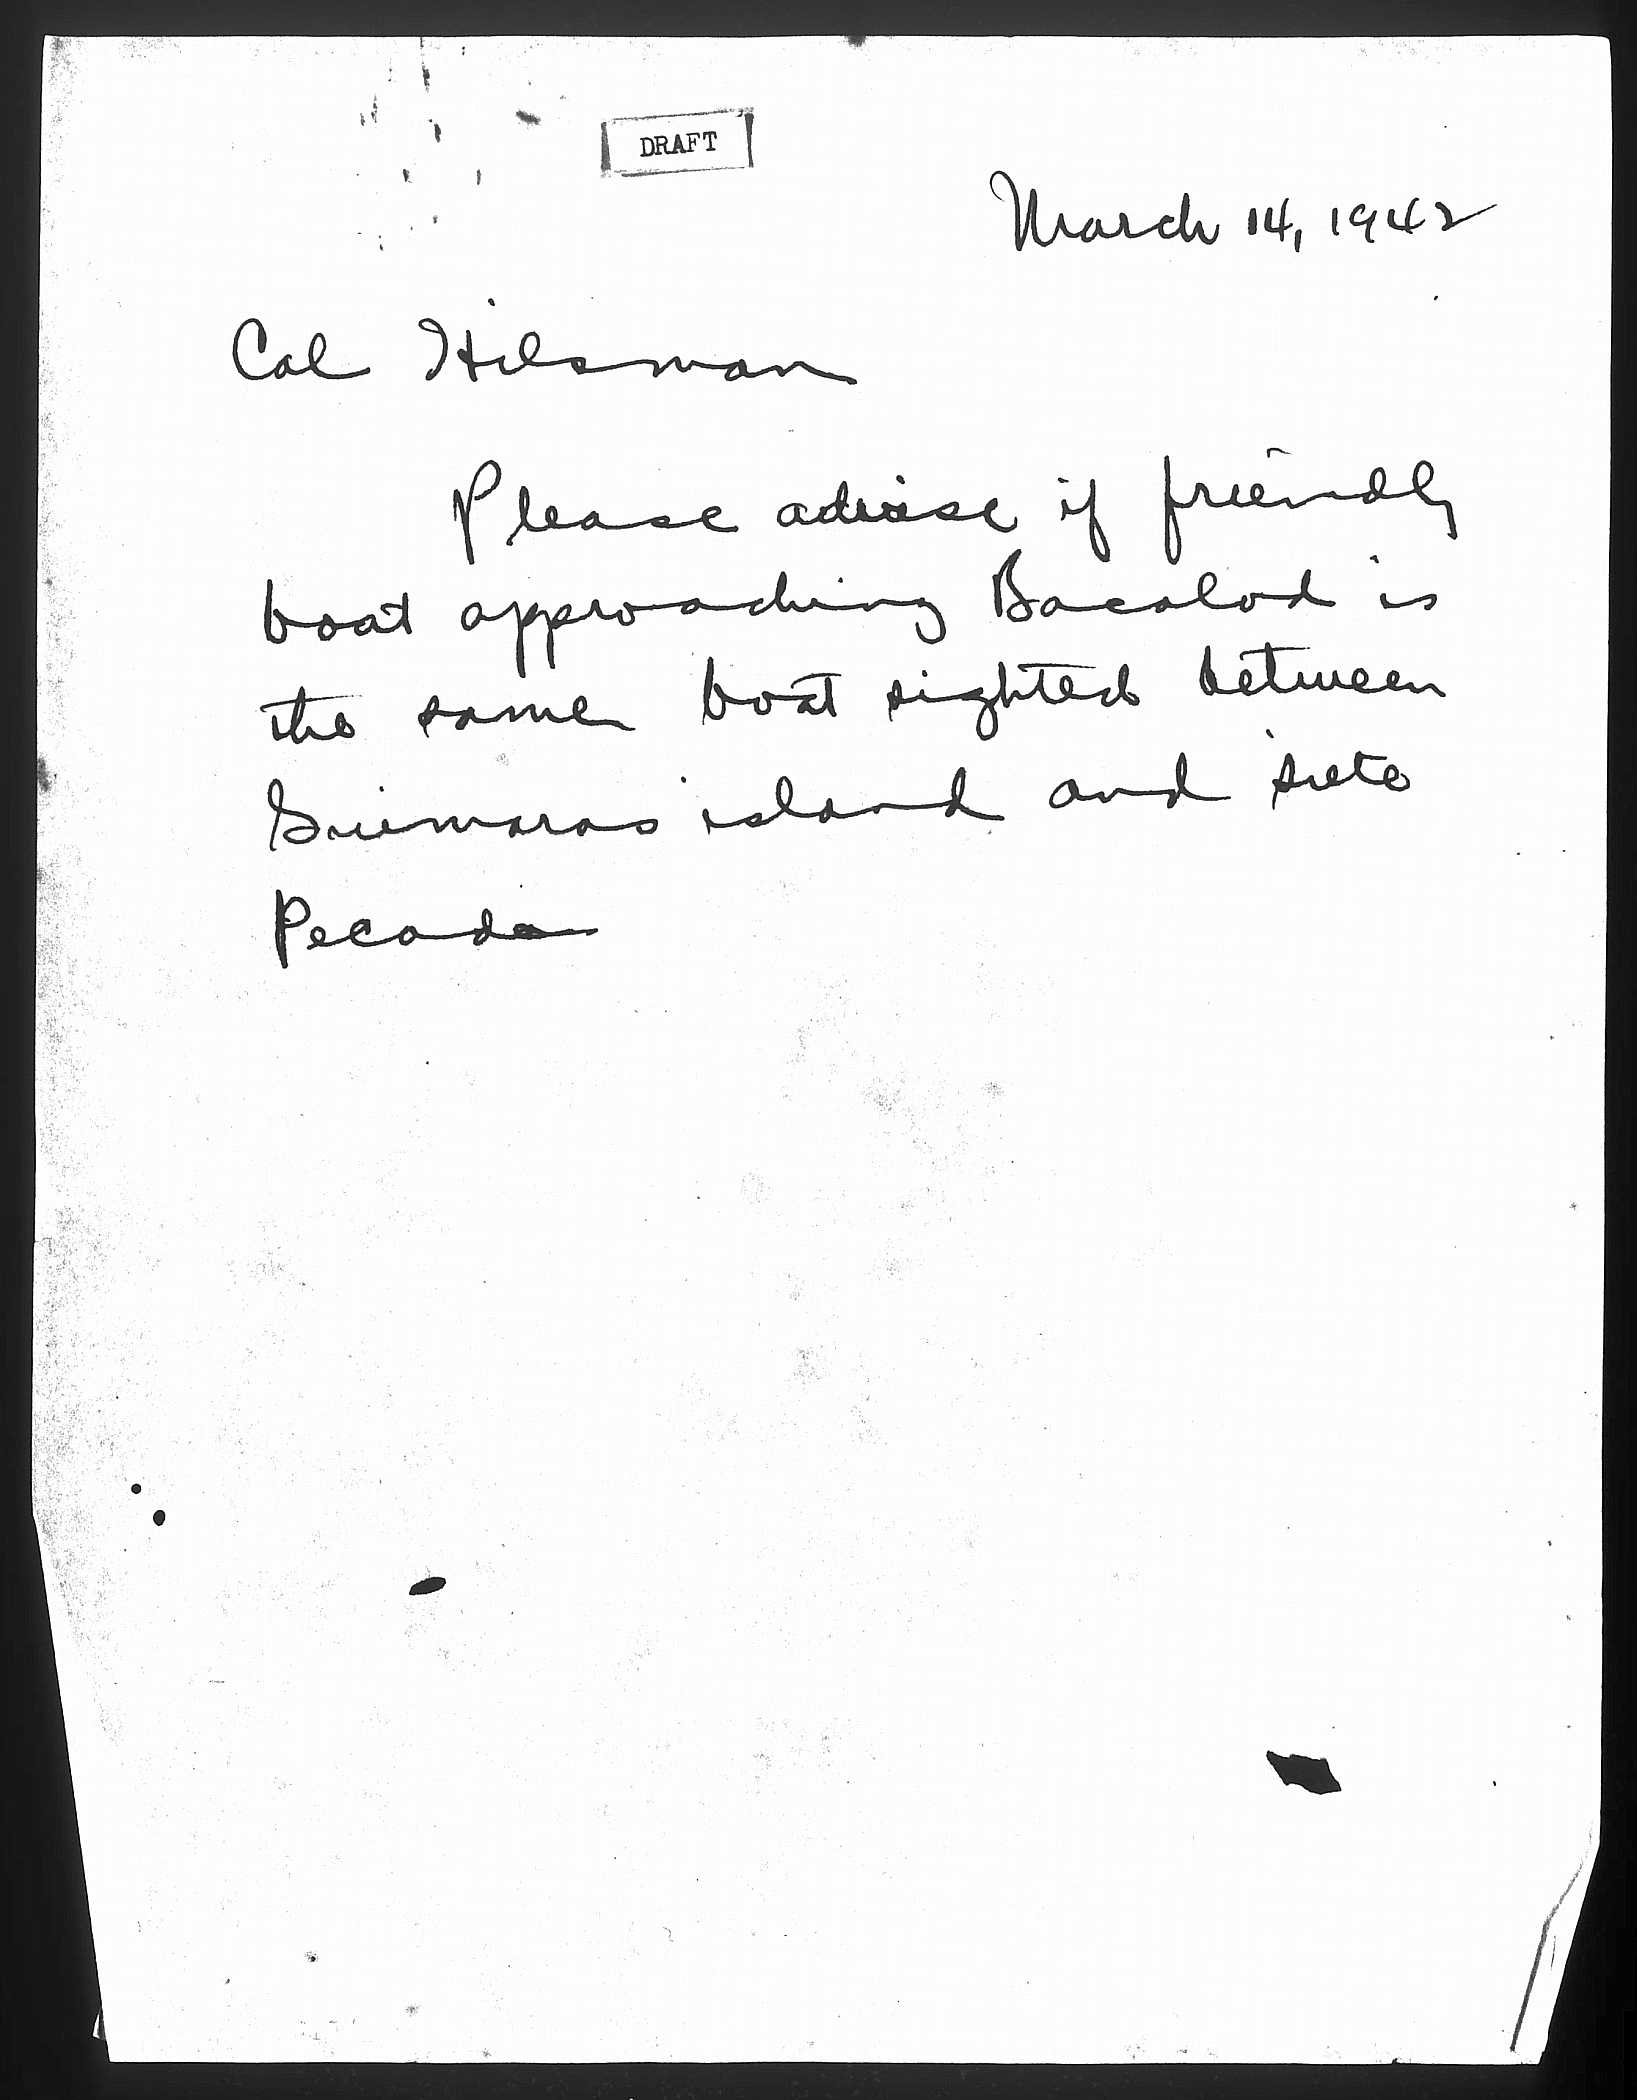 DRAFT
March 14, 1942
Col Hilsman
Please advise if friendly
boat approaching Bacolod is
the same boat sighted between
Guimaras island and siete
Pecado